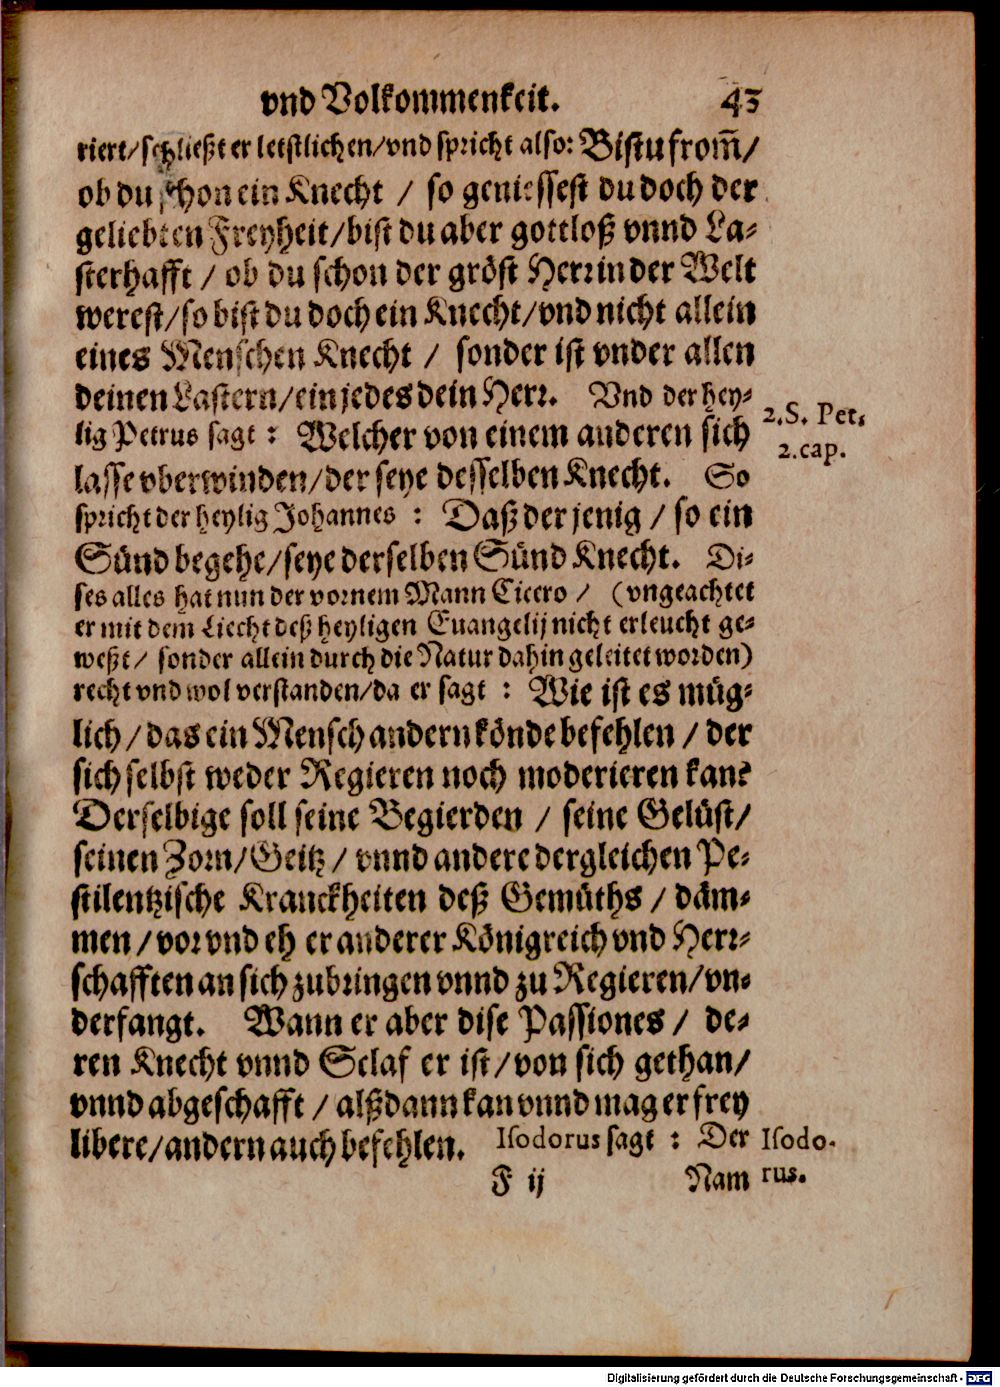 vnd Volkommenkeit. 43
riert/schließt er letstlichen/vnd spricht also: Bistu from̄/
ob du schon ein Knecht / so geniessest du doch der
geliebten Freyheit/bist du aber gottloß vnnd La-
sterhafft / ob du schon der gröst Herr in der Welt
werest/so bist du doch ein Knecht/vnd nicht allein
eines Menschen Knecht / sonder ist vnder allen
deinen Lastern/ein jedes dein Herr. Vnd der hey-
2.S. Pet.
2.cap.
lig Petrus sagt : Welcher von einem anderen sich
lasse vberwinden/der seye desselben Knecht. So
spricht der heylig Johannes : Daß der jenig / so ein
Sünd begehe/seye derselben Sünd Knecht. Di-
ses alles hat nun der vornem Mann Cicero / (vngeachtet
er mit dem Liecht deß heyligen Euangelij nicht erleucht ge-
weßt / sonder allein durch die Natur dahin geleitet worden)
recht vnd wol verstanden/da er sagt : Wie ist es müg-
lich/das ein Mensch andern könde befehlen / der
sich selbst weder Regieren noch moderieren kan?
Derselbige soll seine Begierden / seine Gelüst/
seinen Zorn/Geitz / vnnd andere dergleichen Pe-
stilentzische Kranckheiten deß Gemüths / däm-
men/vor vnd eh er anderer Königreich vnd Herr-
schafften an sich zubringen vnnd zu Regieren/vn-
derfangt. Wann er aber dise Passiones / de-
ren Knecht vnnd Sclaf er ist/von sich gethan/
vnnd abgeschafft / alßdann kan vnnd mag er frey
libere/andern auch befehlen. Isodorus sagt : Der
Isodo-
rus.
F ij Nam
Digitalisierung gefördert durch die Deutsche Forschungsgemeinschaft - DFG